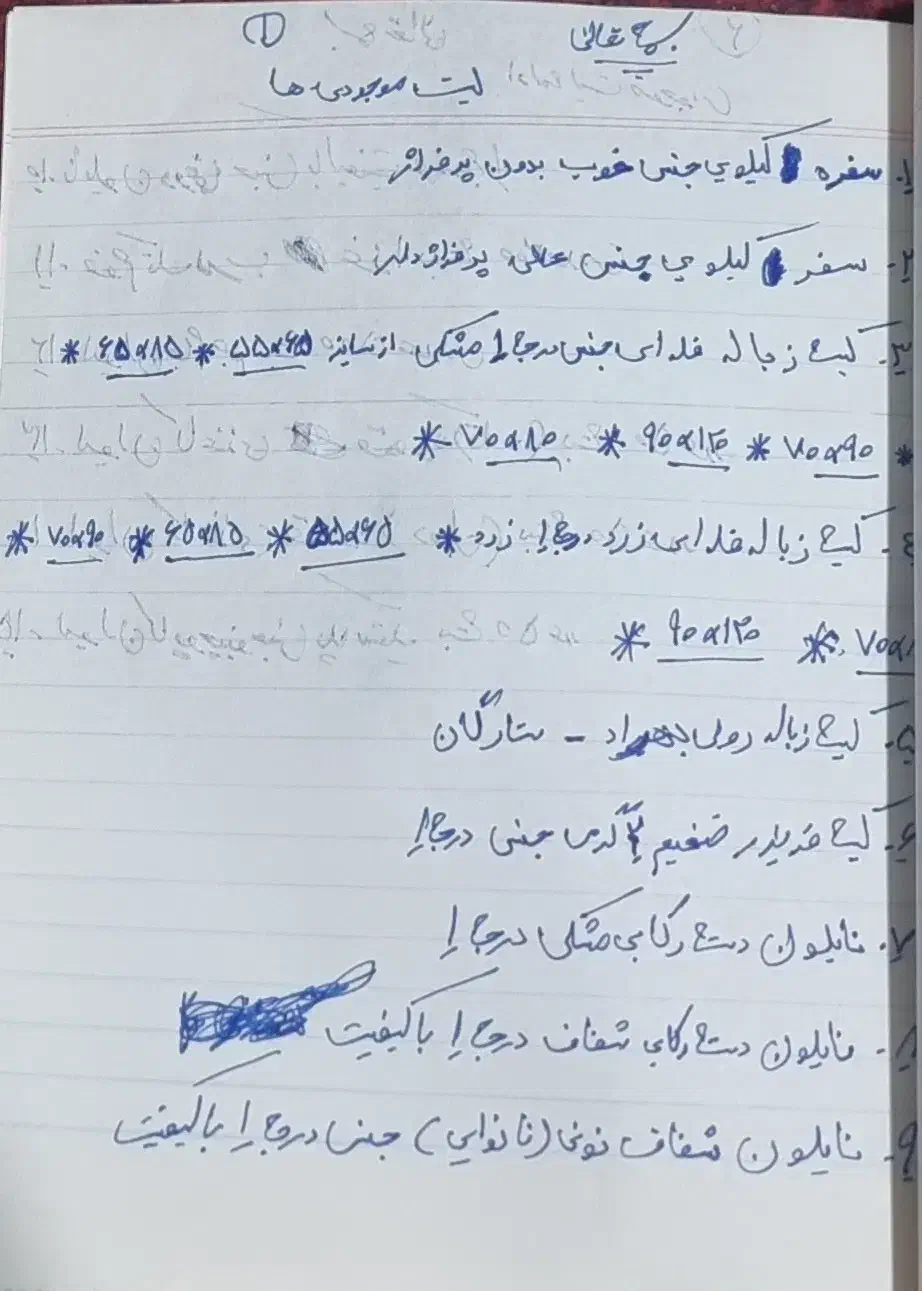 بسمه تعالی ①
لیست موجودی ها
۱. سفره کیلویی جنس خوب بدون پرفراژ
۲- سفره کیلویی جنس عالی پرفراژدار
۳- کیسه زباله فله ای جنس درجه ۱ مشکی از سایز ۵۵×۶۵ * ۶۵×۸۵ *
* ۷۰×۹۰ * ۹۰×۱۲۰ * ۷۰×۸۰ *
٤- کیسه زباله فله ای زرد درجه ۱ زرد * ۵۵×۶۵ * ۶۵×۸۵ * ۷۰×۹۰ *
۷۰×۸ * ۹۰×۱۲۰ *
۵- کیسه زباله رولی بهراد - ستارگان
۶- کیسه فریزر ضخیم گرمی جنس درجه ۱
۷- نایلون دسته رکابی مشکی درجه ۱
۸- نایلون دسته رکابی شفاف درجه ۱ باکیفیت
۹- نایلون شفاف نونی (نانوایی) جنس درجه ۱ باکیفیت